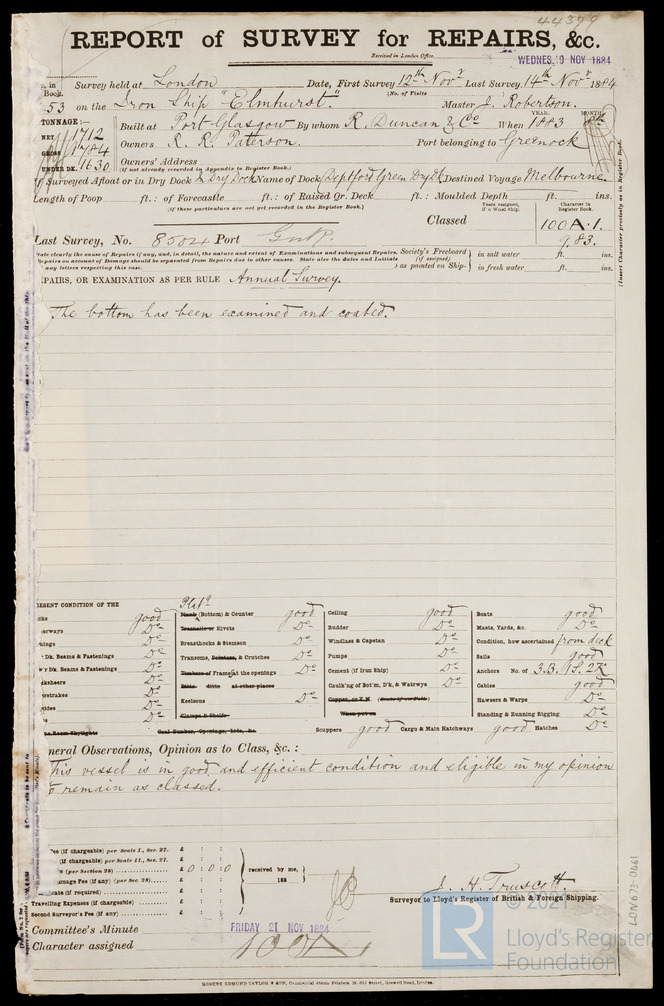 44379
REPORT of SURVEY for REPAIRS, &c.
Received in London Office,
WEDNES. 19 NOV 1884
Survey held at London Date, First Survey 12th Novr Last Survey 14th Novr 1884
Book. (No. of Visits
53 on the Iron Ship "Elmhurst." Master J. Robertson.
TONNAGE:—
NET 1712
GROSS 1784
UNDER DK. 1630
Built at Port Glasgow By whom R. Duncan & Co When 1883 YEAR. MONTH
Owners R. R. Paterson. Port belonging to Greenock
Owners' Address
(if not already recorded in Appendix to Register Book.)
If Surveyed Afloat or in Dry Dock Dry Dock Name of Dock Deptford Green Dry Dk Destined Voyage Melbourne.
Length of Poop ft.: of Forecastle ft.: of Raised Qr. Deck ft.: Moulded Depth ft. ins.
(if these particulars are not yet recorded in the Register Book.)
Years assigned, if a Wood Ship. Character in Register Book
Classed 100A.1.
9.83.
Last Survey, No. 8504 Port Gnk.
State clearly the cause of Repairs if any, and, in detail, the nature and extent of Examinations and subsequent Repairs.
Repairs on account of Damage should be separated from Repairs due to other causes. State also the dates and Initials
any letters respecting this case.
Society's Freeboard (if assigned) as painted on Ship- in salt water ft. ins.
in fresh water ft. ins.
(Insert Character precisely as in Register Book.)
PAIRS, OR EXAMINATION AS PER RULE Annual Survey.
The bottom has been examined and coated.
RESENT CONDITION OF THE
cks good
erways Do
nings Do
Dk. Beams & Fastenings Do
Dk. Beams & Fastenings Do
ksheers Do
uretrakes Do
Do
Do
Plate
Plank (Bottom) & Counter good
Treenails or Rivets Do
Breasthooks & Stemson Do
Transoms, Pointers, & Crutches Do
Timbers of Frames at the openings Do
Ditto, ditto at other places
Keelsons Do
Clamps & Shelfs
Ceiling good
Rudder Do
Windlass & Capstan Do
Pumps Do
Cement (if Iron Ship) Do
Caulk'ng of Bot'm, D'k, & Watrwys Do
Copper, or Y.M.
When put on
Boats good
Masts, Yards, &c. Do
Condition, how ascertained from deck
Sails good
Anchors No. of 3.B. 1S. 2K
Cables good
Hawsers & Warps Do
Standing & Running Rigging Do
Scuppers good Cargo & Main Hatchways good Hatches Do
neral Observations, Opinion as to Class, &c.:
This vessel is in good and efficient condition and eligible in my opinion
to remain as classed.
Fee (if chargeable) per Scale I., Sec. 27. £ : :
(if chargeable) per Scale II., Sec. 27. £ : :
(per Section 28) £ 0 : 0 : 0
amage Fee (if any) (per Sec. 28) £ : :
(if required) £ : :
Travelling Expenses (if chargeable) £ : :
Second Surveyor's Fee (if any) £ : :
received by me,
188
J. H. Truscott.
Surveyor to Lloyd's Register of British & Foreign Shipping.
Committee's Minute FRIDAY 21 NOV 1884
Character assigned 100A
LON673-0461
© 2021
LR
Lloyd's Register
Foundation